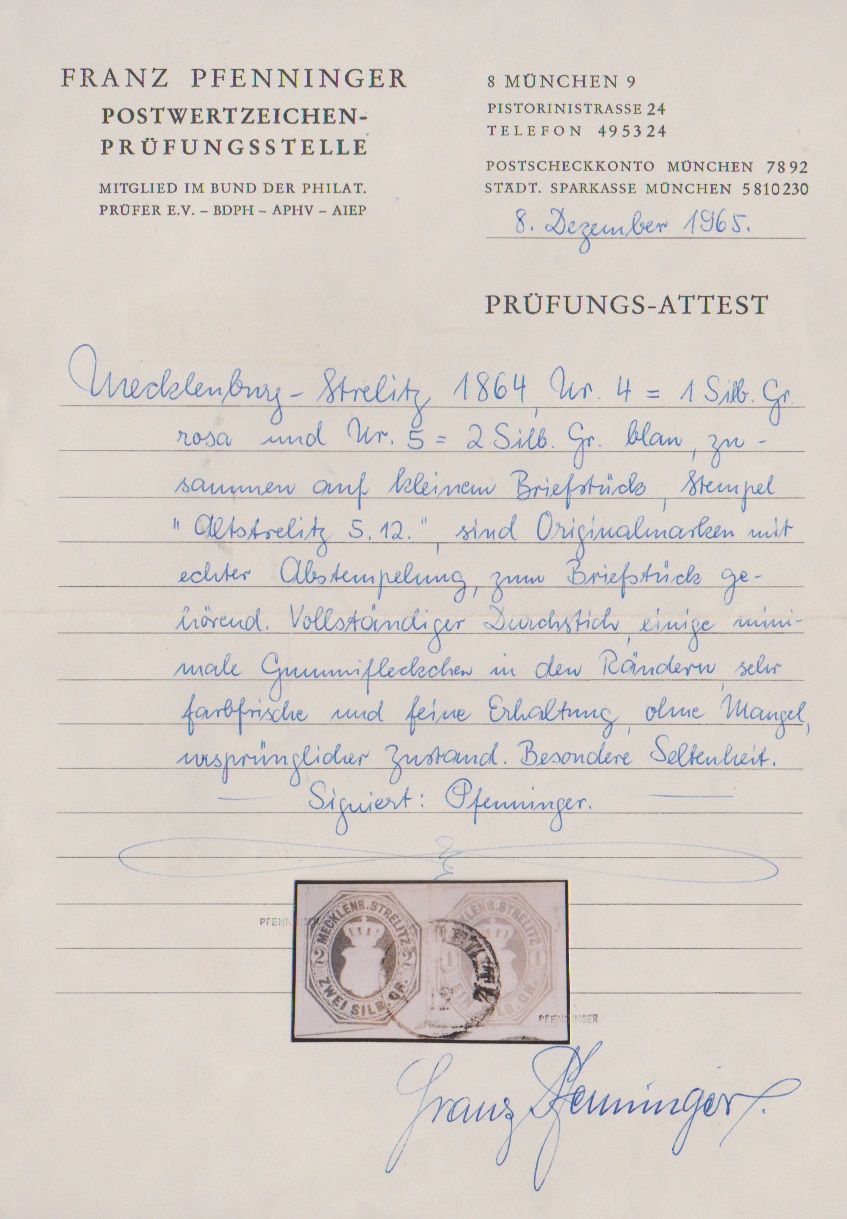 FRANZ PFENNINGER
POSTWERTZEICHEN-
PRÜFUNGSSTELLE
MITGLIED IM BUND DER PHILAT.
PRÜFER E.V. – BDPH – APHV – AIEP
8 MÜNCHEN 9
PISTORINISTRASSE 24
TELEFON 495324
POSTSCHECKKONTO MÜNCHEN 7892
STÄDT. SPARKASSE MÜNCHEN 5810230
8. Dezember 1965.
PRÜFUNGS-ATTEST
Mecklenburg-Strelitz, 1864, Nr. 4 = 1 Silb. Gr.
rosa und Nr. 5 = 2 Silb. Gr. blau, zu-
sammen auf kleinem Briefstück, Stempel
"Altstrelitz 5.12.", sind Originalmarken mit
echter Abstempelung, zum Briefstück ge-
hörend. Vollständiger Durchstich, einige mini-
male Gummifleckchen in den Rändern, sehr
farbfrische und feine Erhaltung, ohne Mängel,
ursprünglicher Zustand. Besondere Seltenheit.
— Signiert: Pfenninger. —
PFENNINGER
MECKLENB. STRELITZ
2 2
ZWEI SILB. GR.
MECKLENB. STRELITZ
1 1
EIN SILB. GR.
PFENNINGER
Franz Pfenninger.